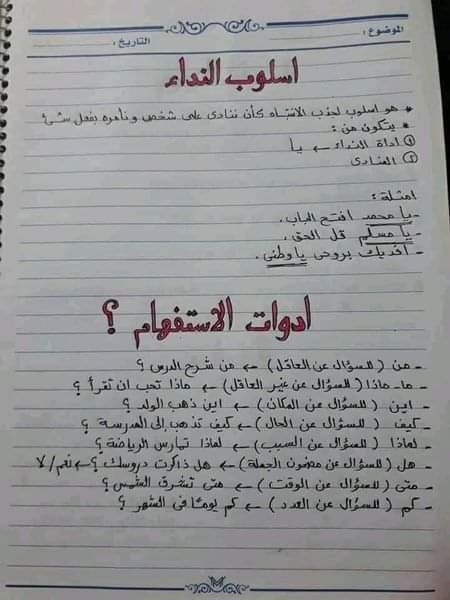 الموضوع :
التاريخ :
اسلوب النداء
* هو اسلوب لجذب الانتباه كأن ننادى على شخص ونأمره بفعل شئ
* يتكون من :
① اداة النداء ← يا
② المنادى
امثلة :
- يا محمد افتح الباب .
- يا مسلم قل الحق .
- أفديك بروحى يا وطنى .
ادوات الاستفهام ؟
- من ( للسؤال عن العاقل ) ← من شرح الدرس ؟
- ما - ماذا ( للسؤال عن غير العاقل ) ← ماذا تحب ان تقرأ ؟
- اين ( للسؤال عن المكان ) ← اين ذهب الولد ؟
- كيف ( للسؤال عن الحال ) ← كيف تذهب إلى المدرسة ؟
- لماذا ( للسؤال عن السبب ) ← لماذا تمارس الرياضة ؟
- هل ( للسؤال عن مضمون الجملة ) ← هل ذاكرت دروسك ؟ ← نعم / لا
- متى ( للسؤال عن الوقت ) ← متى تشرق الشمس ؟
- كم ( للسؤال عن العدد ) ← كم يومًا فى الشهر ؟